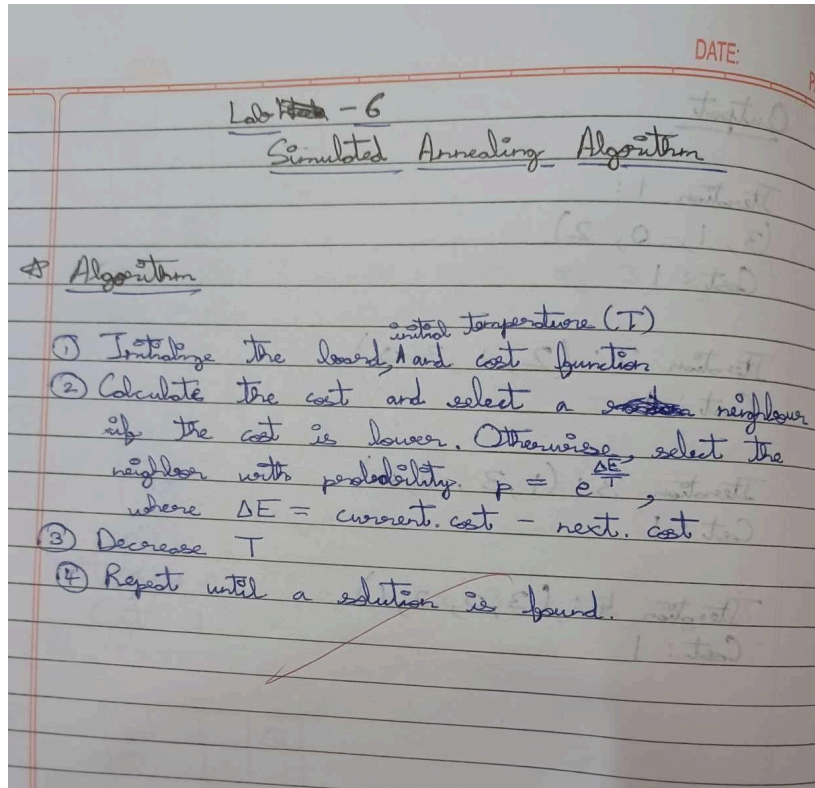 DATE:
Lab - 6
Simulated Annealing Algorithm
Algorithm
initial temperature (T)
① Initialize the board, and cost function
② Calculate the cost and select a neighbour
if the cost is lower. Otherwise, select the
neighbor with probability. p = e^(ΔE/T),
where ΔE = current.cost - next.cost
③ Decrease T
④ Repeat until a solution is found.